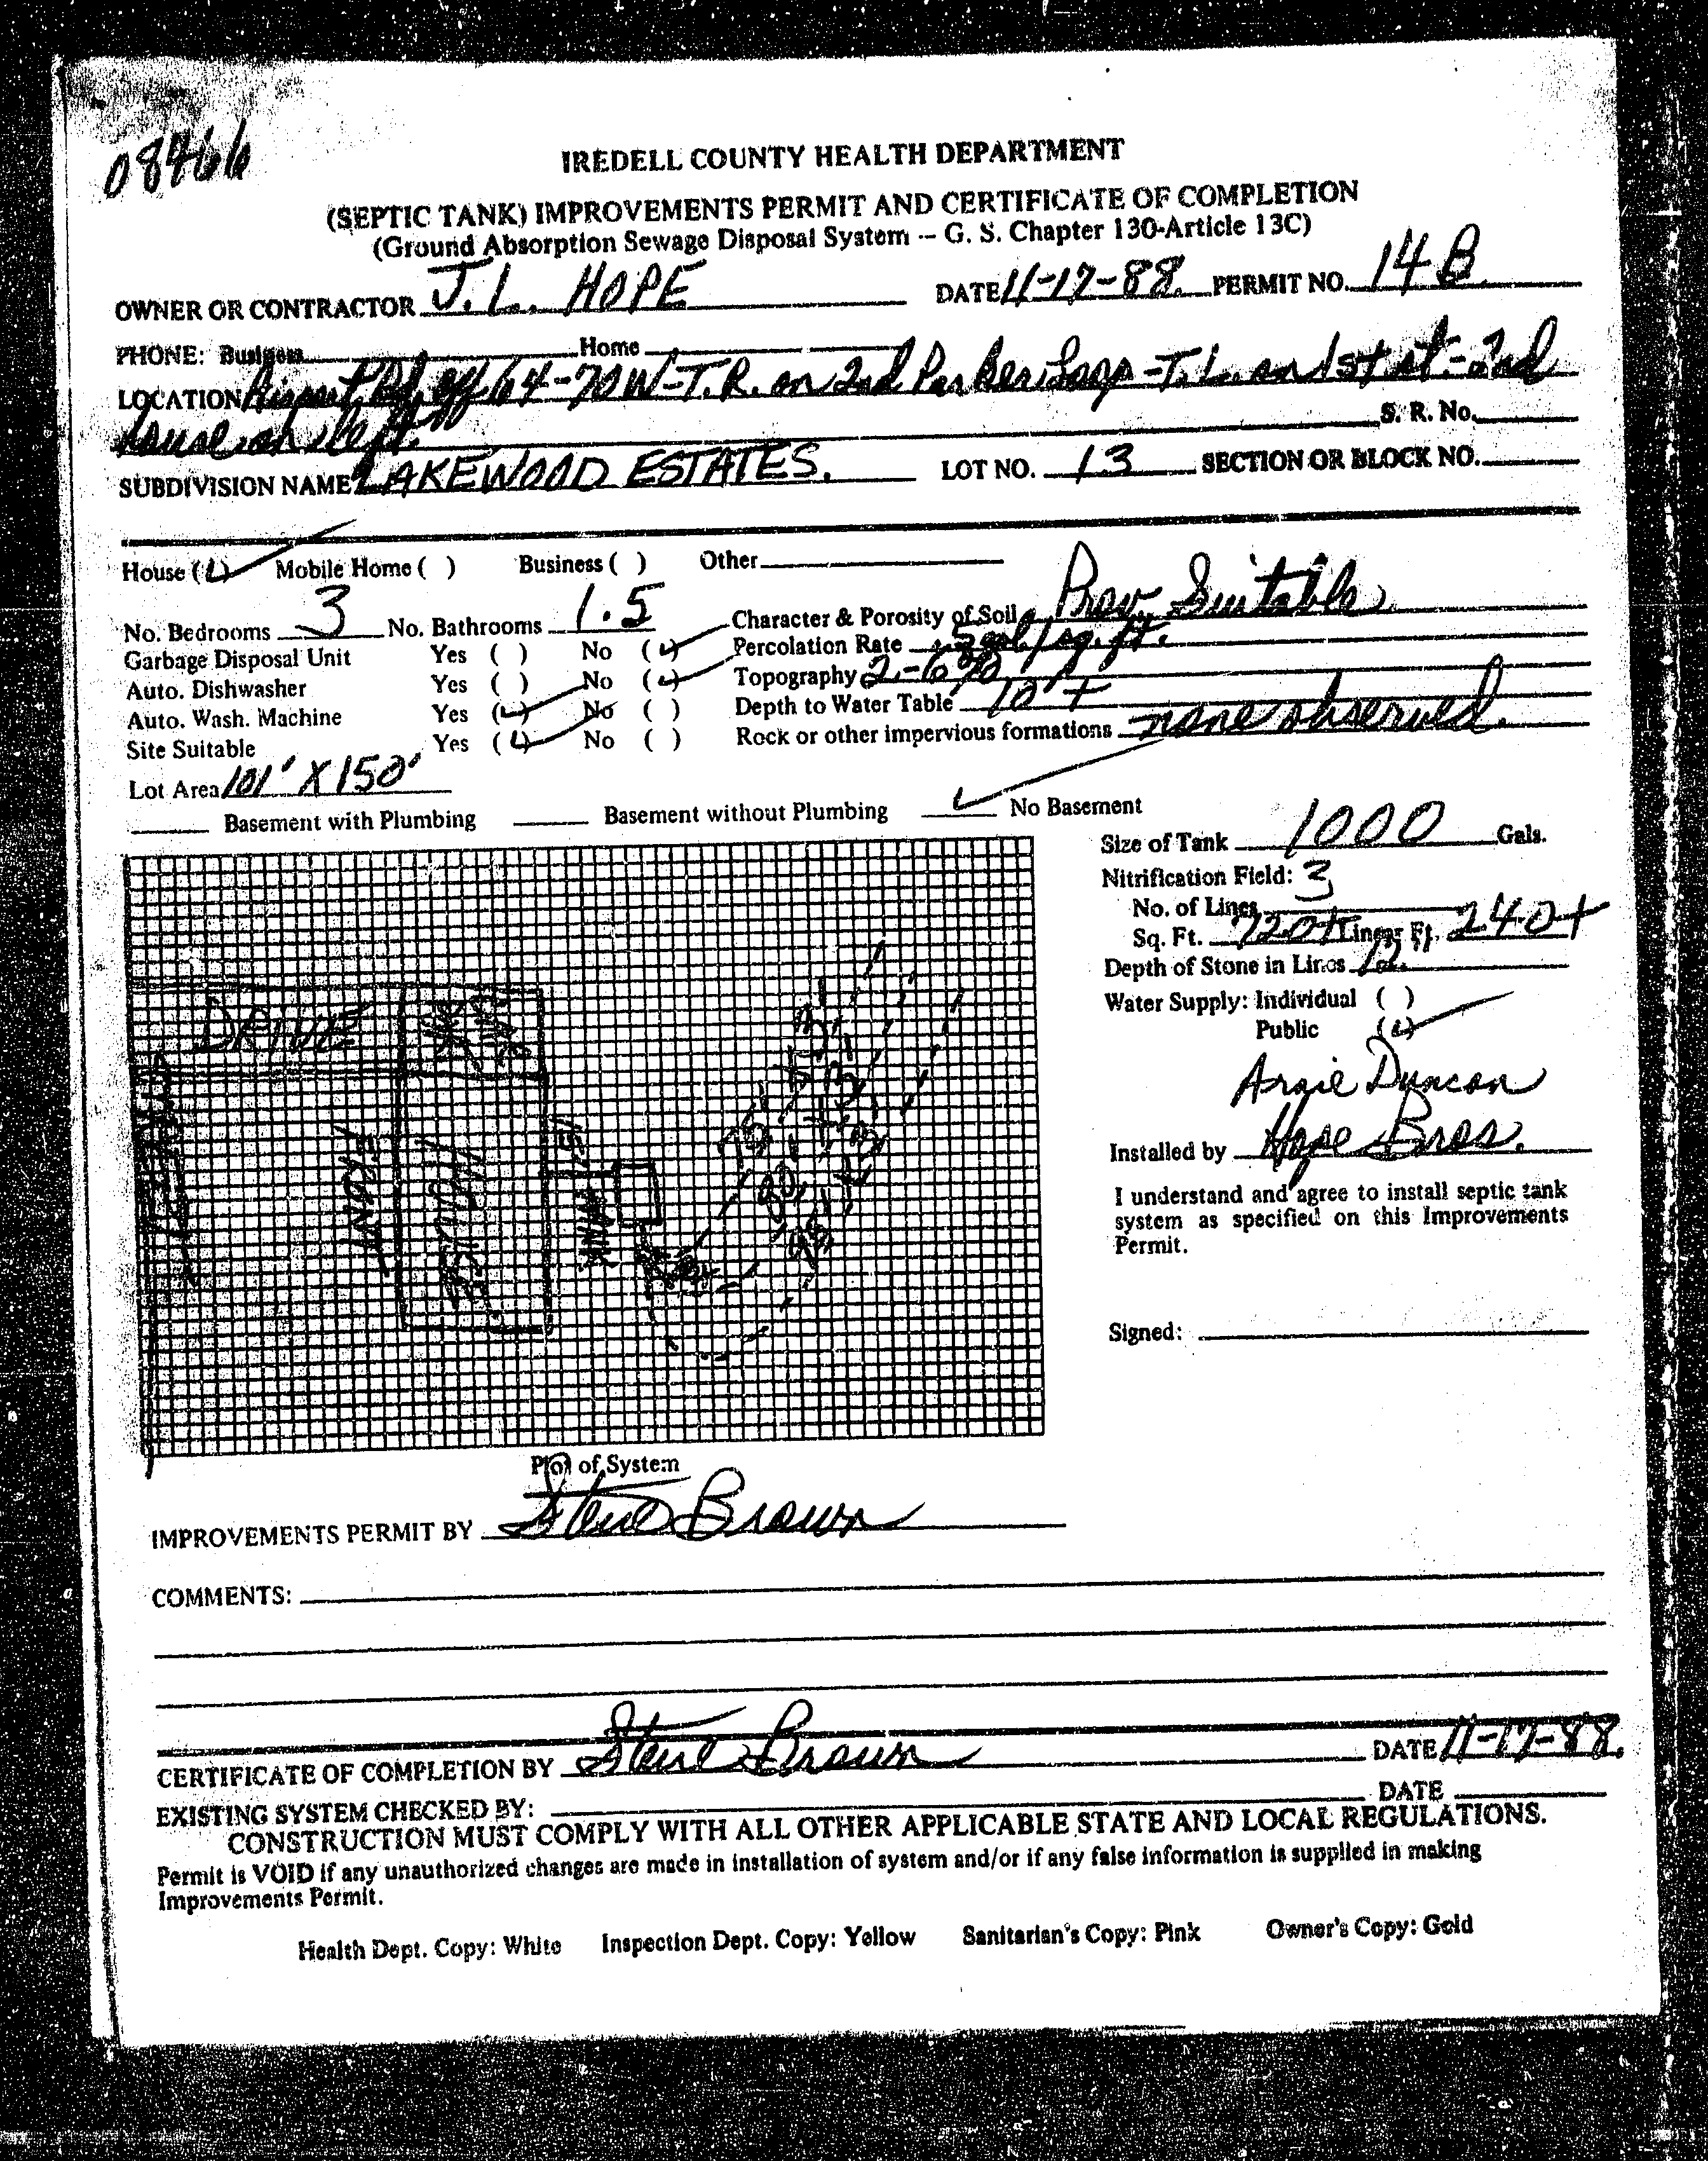 08466
IREDELL COUNTY HEALTH DEPARTMENT
(SEPTIC TANK) IMPROVEMENTS PERMIT AND CERTIFICATE OF COMPLETION
(Ground Absorption Sewage Disposal System -- G. S. Chapter 130-Article 13C)
OWNER OR CONTRACTOR J. L. HOPE DATE 11-17-88. PERMIT NO. 14 B
PHONE: Business Home
LOCATION Airport Rd. off 64-70 W-T.R. on 2nd Parker Loop -T.L. on 1st st.- 2nd
house on left S. R. No.
SUBDIVISION NAME LAKEWOOD ESTATES. LOT NO. 13 SECTION OR BLOCK NO.
House ( ) Mobile Home ( ) Business ( ) Other
No. Bedrooms 3 No. Bathrooms 1.5 Character & Porosity of Soil Prov. Suitable
Garbage Disposal Unit Yes ( ) No ( ) Percolation Rate gal/sq.ft.
Auto. Dishwasher Yes ( ) No ( ) Topography 2-6%
Auto. Wash. Machine Yes ( ) No ( ) Depth to Water Table 10'+
Site Suitable Yes ( ) No ( ) Rock or other impervious formations none observed.
Lot Area 101' X 150'
Basement with Plumbing Basement without Plumbing No Basement
Size of Tank 1000 Gals.
Nitrification Field: 3
No. of Lines
Sq. Ft. 720+ Linear Ft. 240+
Depth of Stone in Lines 12"
Water Supply: Individual ( )
Public ( )
DRIVE
FRONT
HOUSE
TANK
15'
75'
80'
Argie Duncan
Installed by Hope Bros.
I understand and agree to install septic tank
system as specified on this Improvements
Permit.
Signed:
Plot of System
IMPROVEMENTS PERMIT BY Steve Brown
COMMENTS:
CERTIFICATE OF COMPLETION BY Steve Brown DATE 11-17-88.
EXISTING SYSTEM CHECKED BY: DATE
CONSTRUCTION MUST COMPLY WITH ALL OTHER APPLICABLE STATE AND LOCAL REGULATIONS.
Permit is VOID if any unauthorized changes are made in installation of system and/or if any false information is supplied in making
Improvements Permit.
Health Dept. Copy: White Inspection Dept. Copy: Yellow Sanitarian's Copy: Pink Owner's Copy: Gold